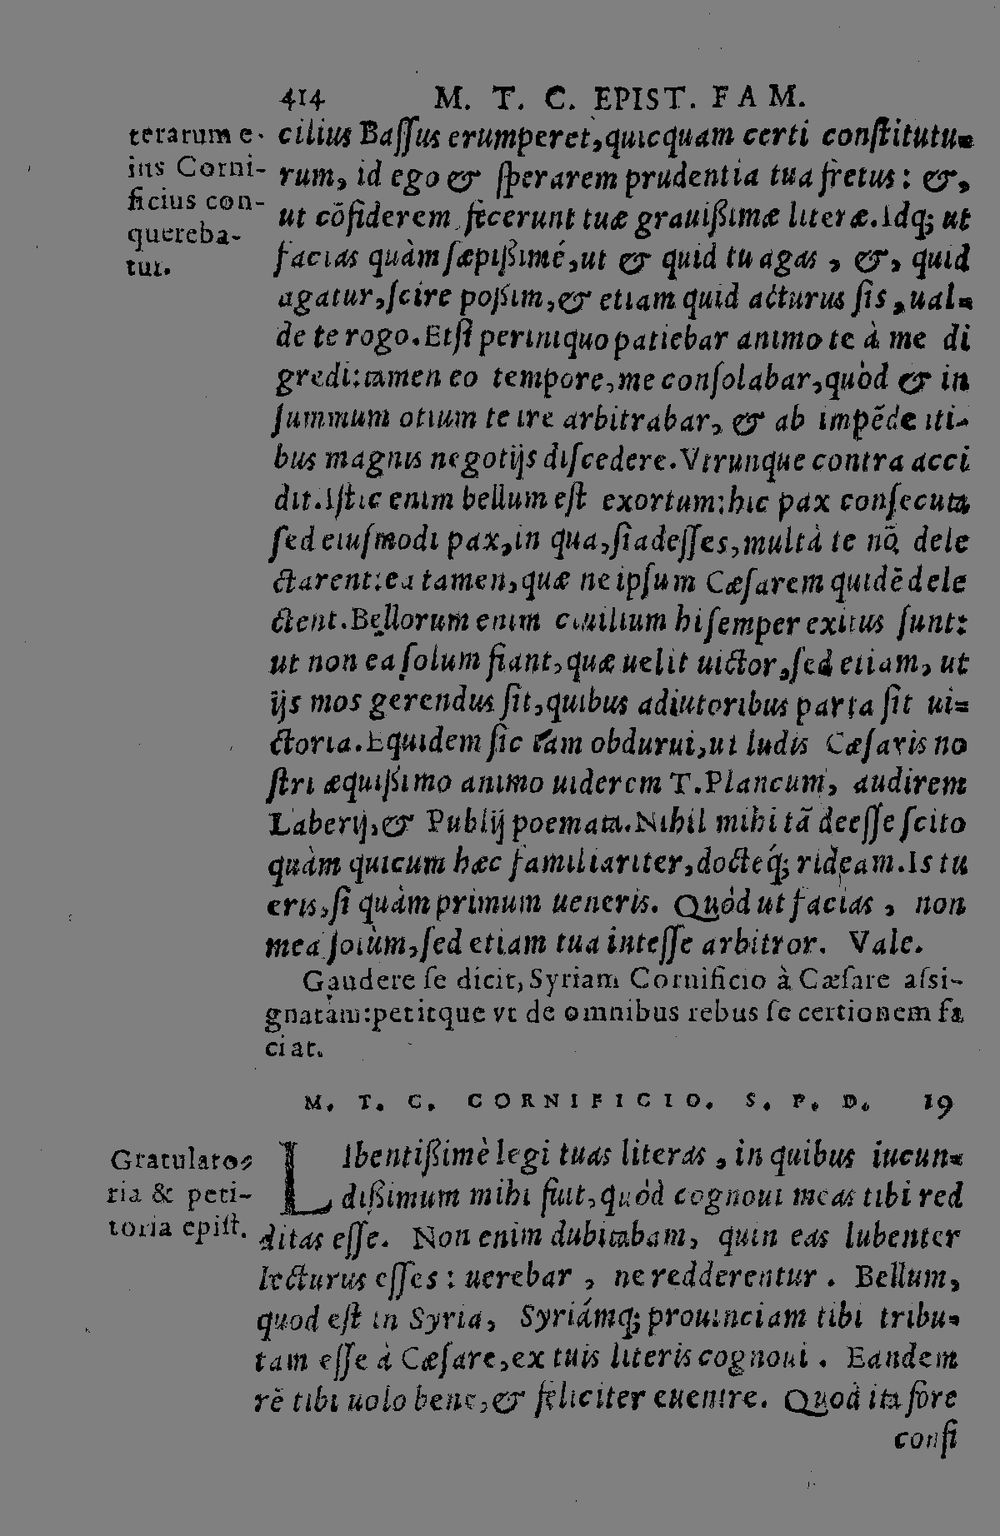 414 M. T. C. EPIST. FAM.
terarum e-
ius Corni-
ficius con-
quereba-
tur.
cilius Baſſus erumperet, quicquam certi conſtitutu=
rum, id ego & ſperarem prudentia tua fretus: &,
ut cōfiderem fecerunt tuæ grauißimæ literæ. Idq; ut
facias quàm ſæpißimé, ut & quid tu agas, &, quid
agatur, ſcire poßim, & etiam quid acturus ſis, ual=
de te rogo. Etſi periniquo patiebar animo te à me di
gredi: tamen eo tempore, me conſolabar, quòd & in
ſummum otium te ire arbitrabar, & ab impēde iti-
bus magnis negotijs diſcedere. Vtrunque contra acci
dit. Iſtic enim bellum eſt exortum: hic pax conſecuta
ſed eiuſmodi pax, in qua, ſi adeſſes, multà te nō dele
ctarent: ea tamen, quæ ne ipſum Cæſarem quidē dele
ctent. Bellorum enim ciuilium hi ſemper exitus ſunt:
ut non ea ſolum fiant, quæ uelit uictor, ſed etiam, ut
ijs mos gerendus ſit, quibus adiutoribus parta ſit ui=
ctoria. Equidem ſic iam obdurui, ut ludis Cæſaris no
ſtri æquißimo animo uiderem T. Plancum, audirem
Laberij, & Publij poemata. Nihil mihi tā deeſſe ſcito
quàm quicum hæc familiariter, docteq́; rideam. Is tu
eris, ſi quàm primum ueneris. Quòd ut facias, non
mea ſolùm, ſed etiam tua inteſſe arbitror. Vale.
Gaudere ſe dicit, Syriam Cornificio à Cæſare aſsi-
gnatam: petitque vt de omnibus rebus ſe certionem fa
ciat.
M. T. C. CORNIFICIO. S. P. D. 19
Gratulato-
ria & peti-
toria epiſt.
LIbentißimè legi tuas literas, in quibus iucun=
dißimum mihi fuit, quòd cognoui meas tibi red
ditas eſſe. Non enim dubitabam, quin eas lubenter
lecturus eſſes: uerebar, ne redderentur. Bellum,
quod eſt in Syria, Syriámq; prouinciam tibi tribu=
tam eſſe à Cæſare, ex tuis literis cognoui. Eandem
rē tibi uolo bene, & feliciter euenire. Quod ita fore
conſi